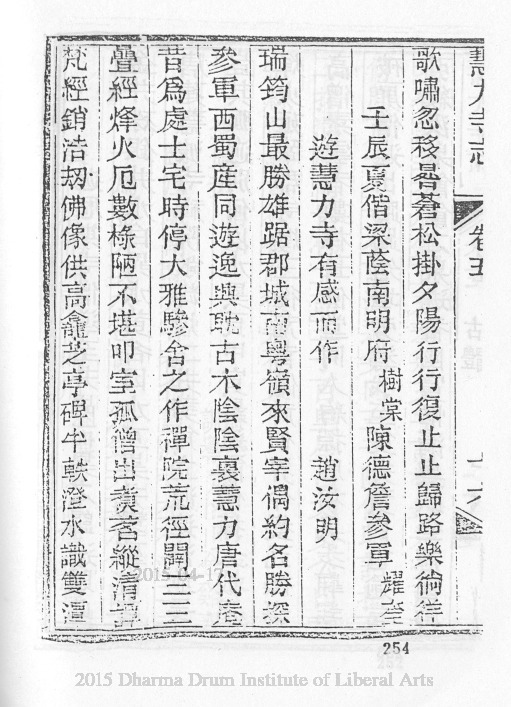 慧力寺志 卷五 古體
歌嘯忽移晷蒼松掛夕陽行行復止止歸路樂徜徉
壬辰夏偕梁蔭南明府樹棠陳德詹參軍耀奎
遊慧力寺有感而作 趙汝明
瑞筠山最勝雄踞郡城南粵嶺來賢宰偶約名勝探
參軍西蜀産同遊逸興耽古木陰陰裏慧力唐代庵
昔爲處士宅時停大雅驂舍之作禪院荒徑闢三三
疊經烽火厄數椽陋不堪叩室孤僧出煑茗縱清譚
梵經銷浩刼佛像供高龕芝亭碑半軼澄水識雙潭
254
2015-04-17
2015 Dharma Drum Institute of Liberal Arts